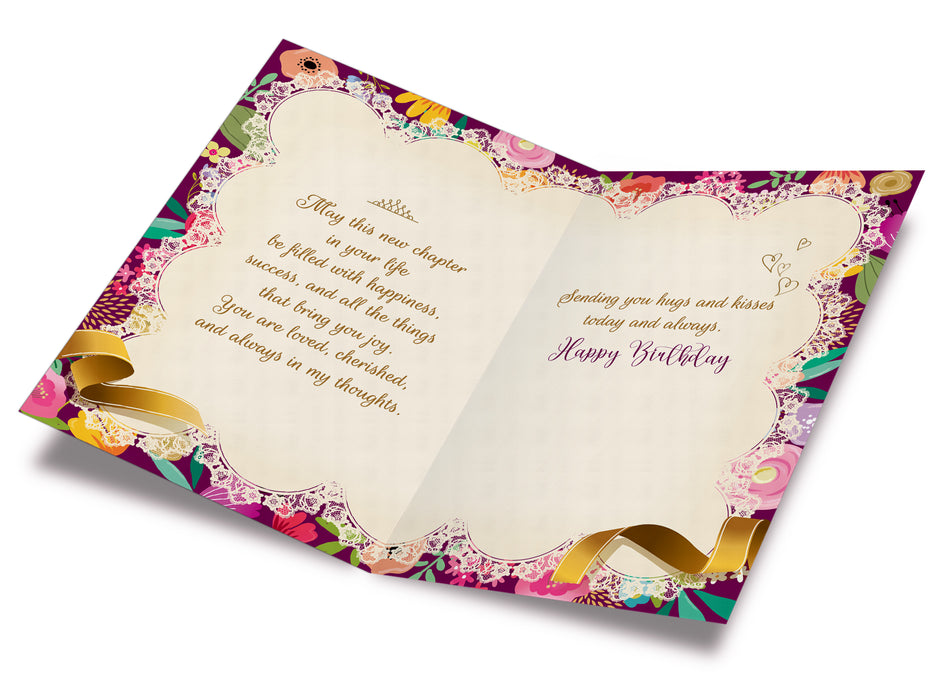 May this new chapter
in your life
be filled with happiness,
success, and all the things
that bring you joy.
You are loved, cherished,
and always in my thoughts.
Sending you hugs and kisses
today and always.
Happy Birthday